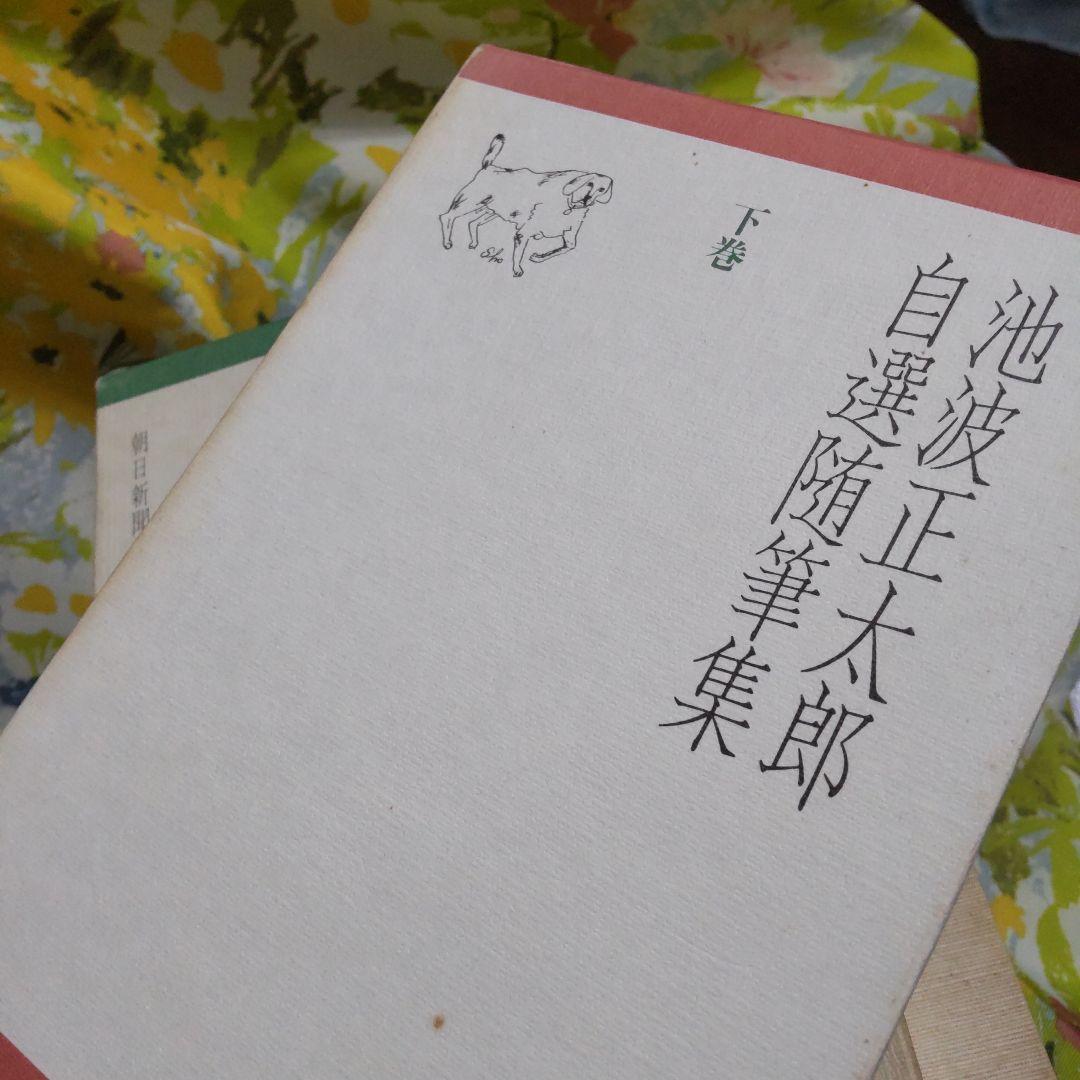 池波正太郎
自選随筆集
下巻
Sho
朝日新聞